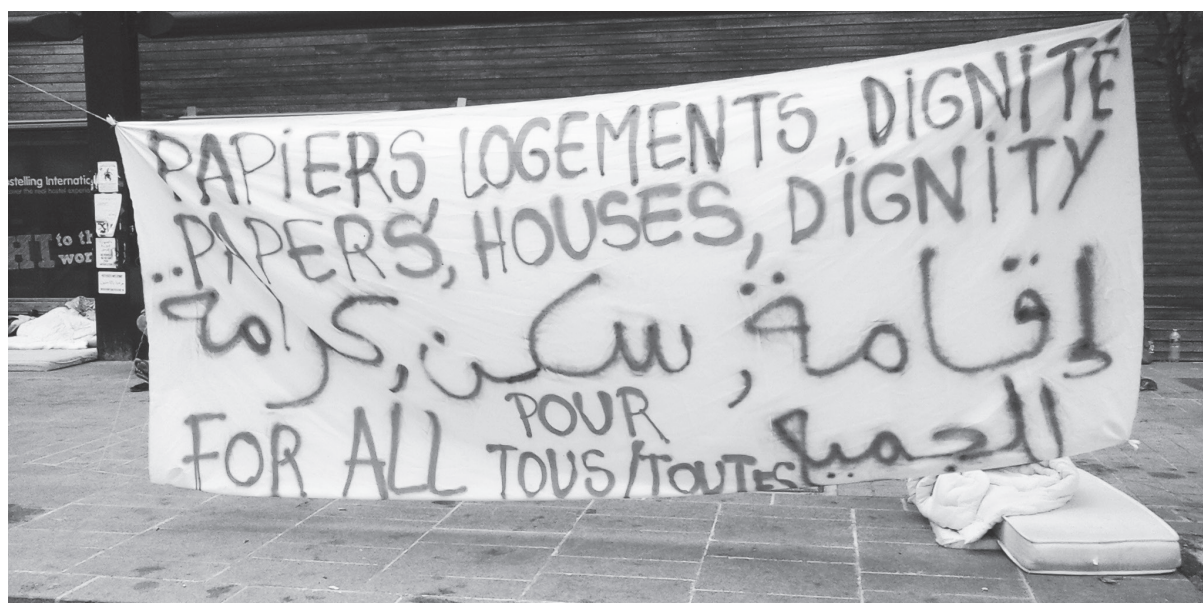 PAPIERS, LOGEMENTS, DIGNITÉ
PAPERS, HOUSES, DIGNITY
إقامة, سكن, كرامة
FOR ALL POUR TOUS/TOUTES للجميع
to th
wor